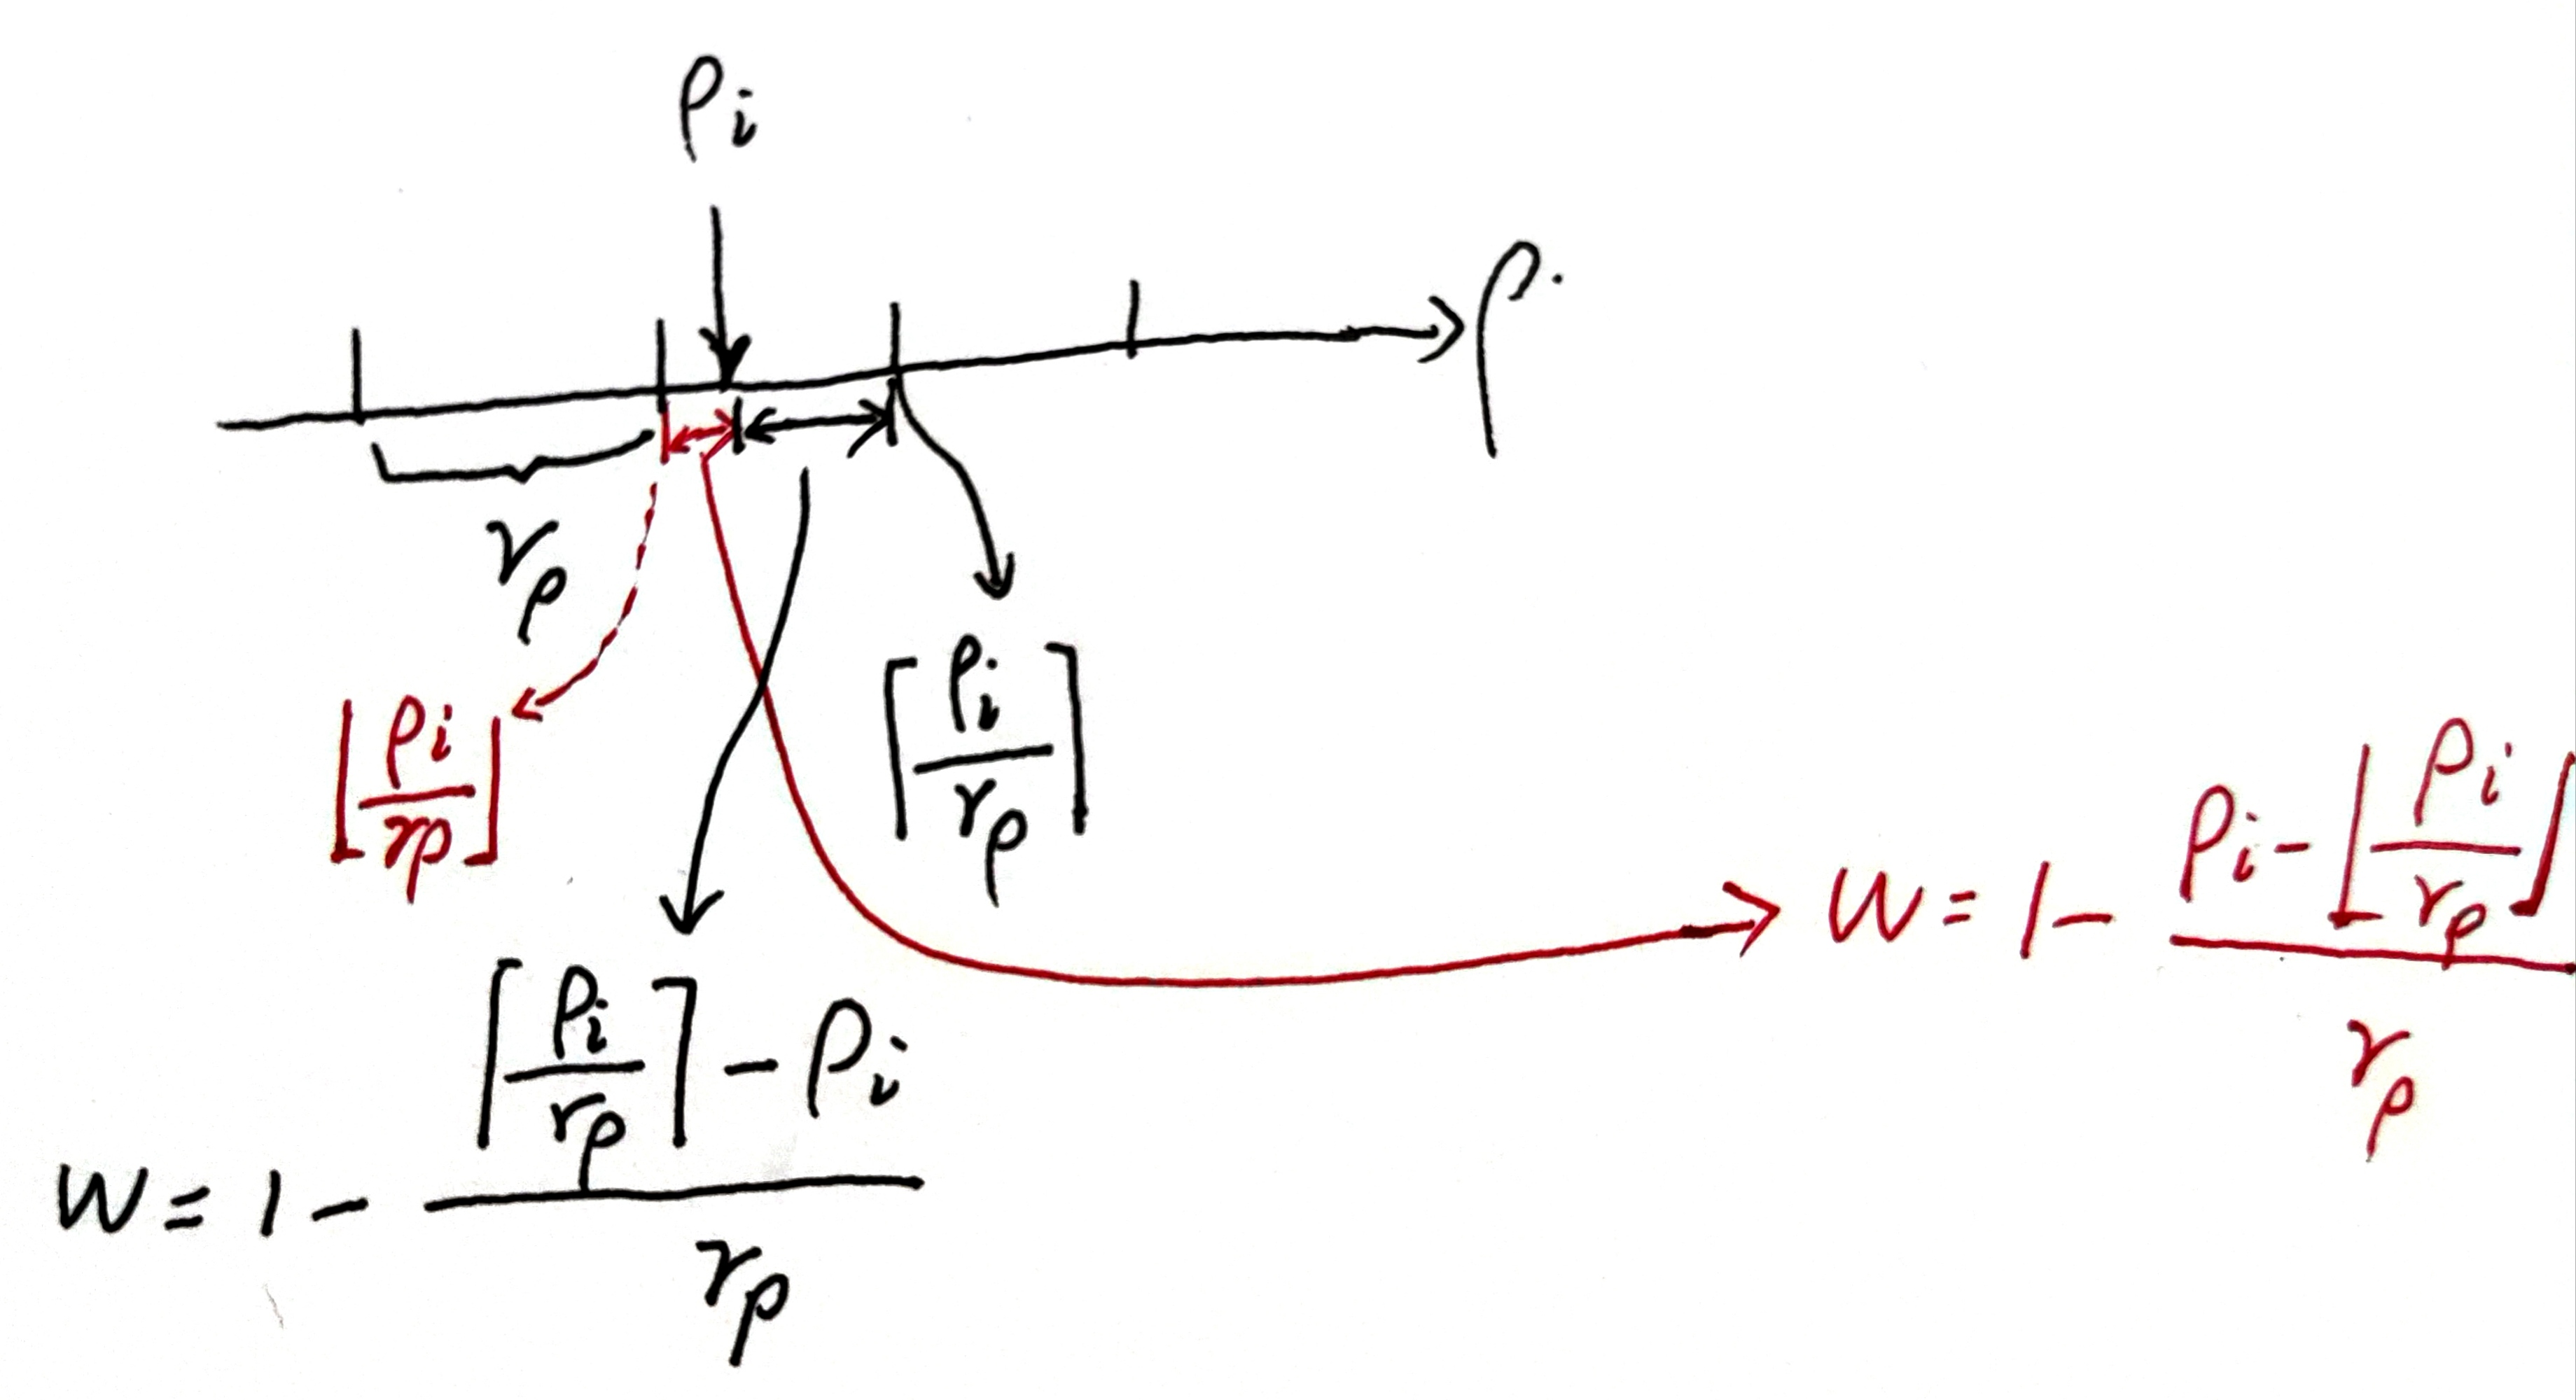 ρi
ρ
rρ
⌊ρi/rρ⌋
⌈ρi/rρ⌉
W = 1 - (ρi - ⌊ρi/rρ⌋)/rρ
W = 1 - (⌈ρi/rρ⌉ - ρi)/rρ